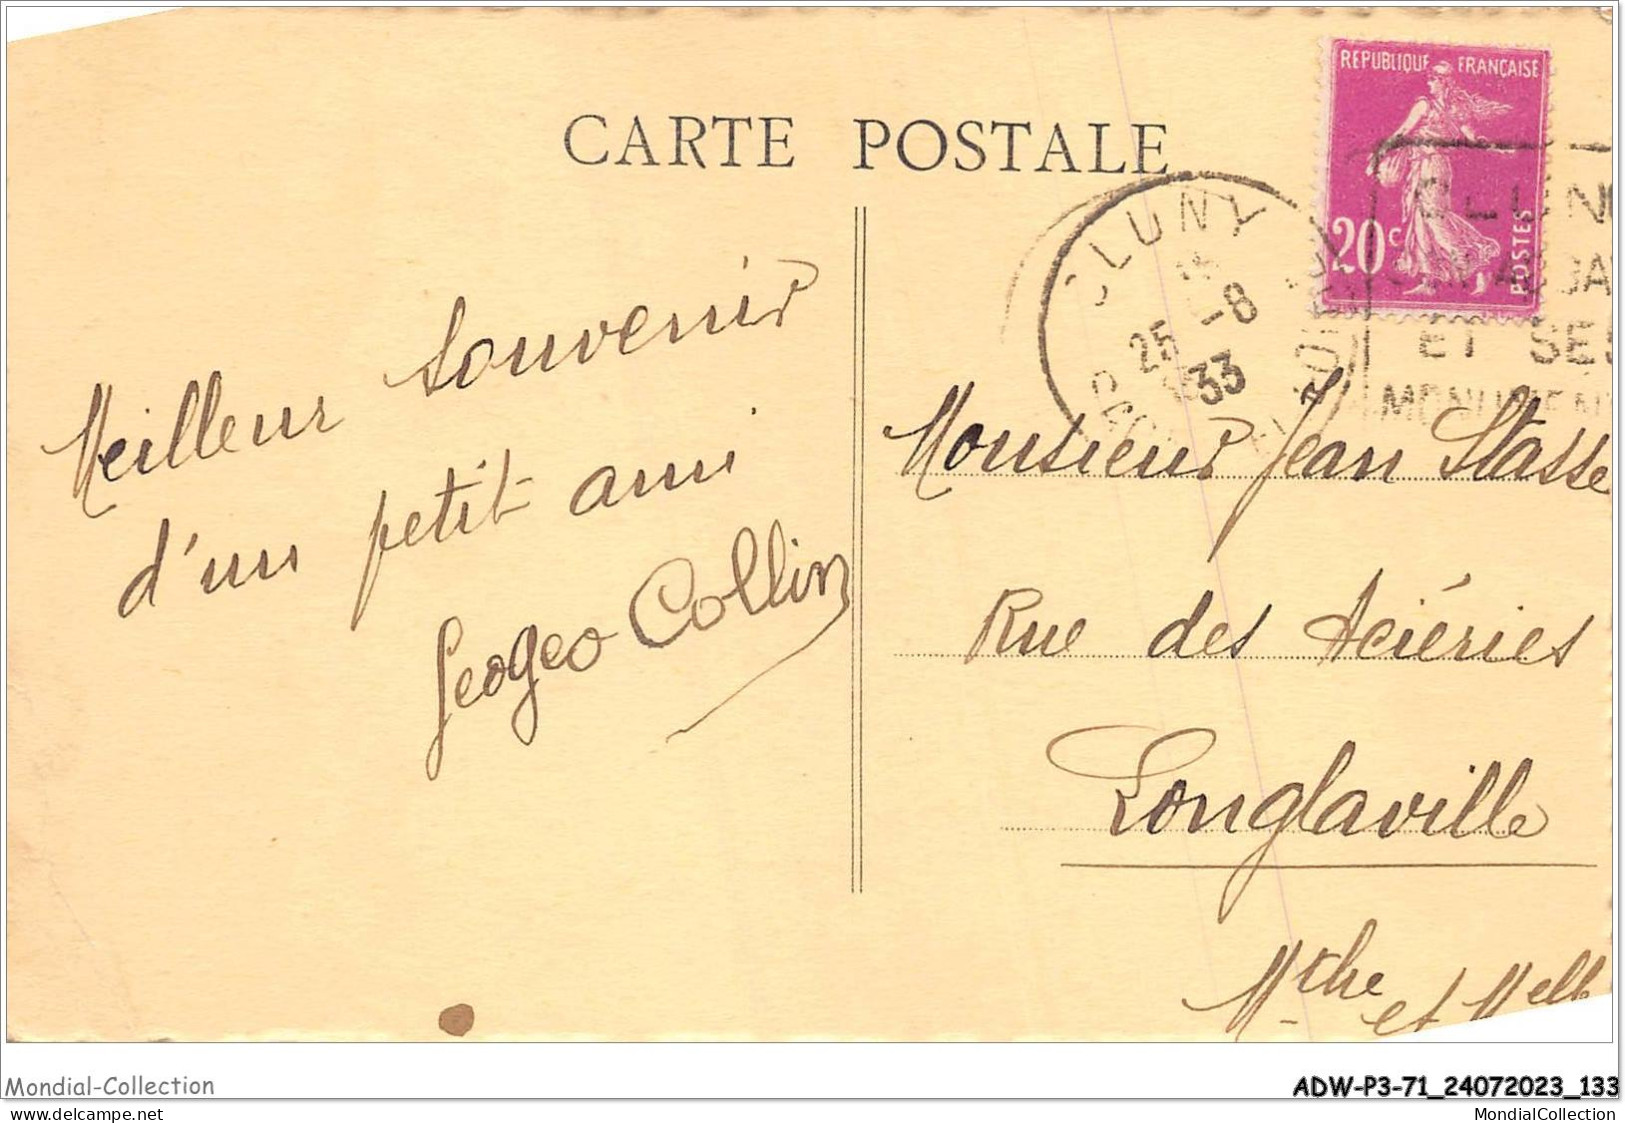 CARTE POSTALE
REPUBLIQUE FRANÇAISE
20c
POSTES
CLUNY
25 -8
33
ET SES
MONUMEN
Meilleur souvenir
d'un petit ami
Geogeo Collin
Monsieur Jean Stasse
Rue des Aciéries
Longlaville
Mthe et Melle
Mondial-Collection
ADW-P3-71_24072023_133
www.delcampe.net
MondialCollection